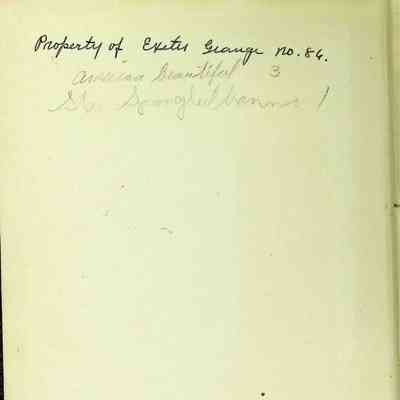 Property of Exeter Grange no. 86.
America beautiful 3
Star Spangled banner 1